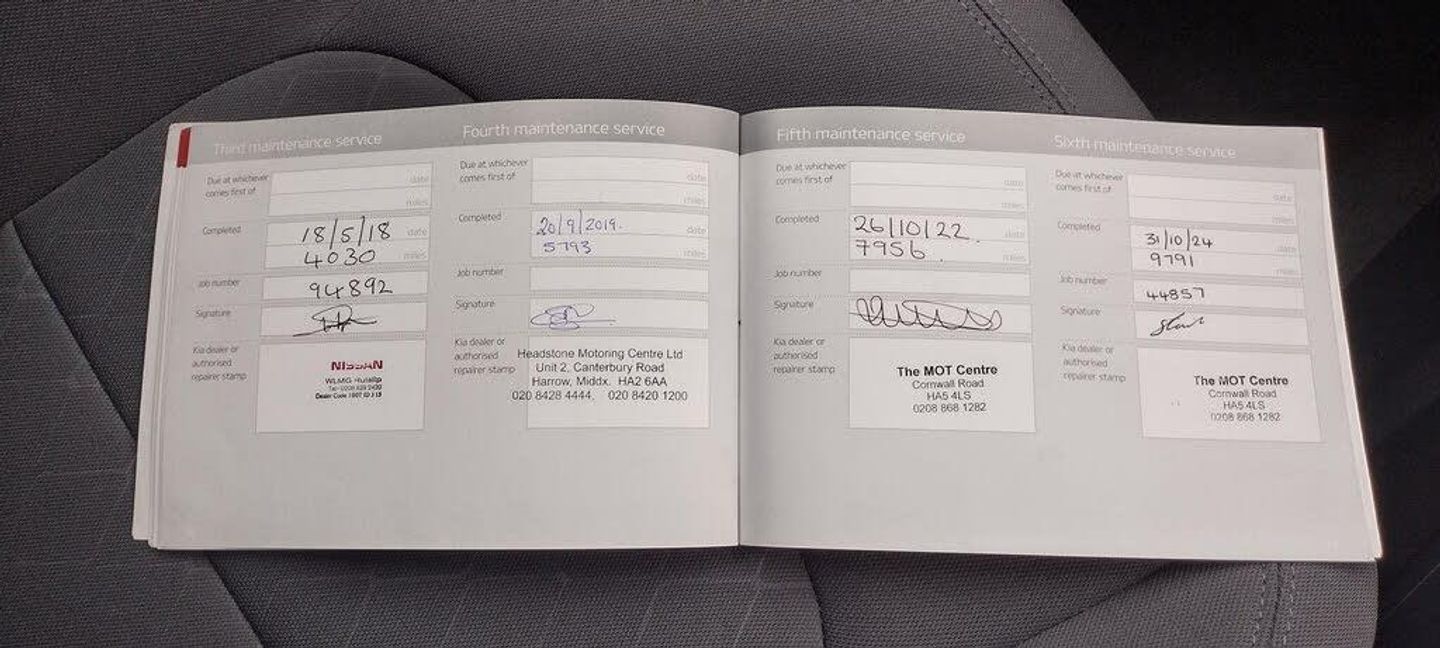 Third maintenance service
Due at whichever
comes first of
date
miles
Completed
18/5/18 date
4030 miles
Job number
94892
Signature
Kia dealer or
authorised
repairer stamp
NISSAN
WLMG Ruislip
Fourth maintenance service
Due at whichever
comes first of
date
miles
Completed
20/9/2019. date
5793 miles
Job number
Signature
Kia dealer or
authorised
repairer stamp
Headstone Motoring Centre Ltd
Unit 2, Canterbury Road
Harrow, Middx. HA2 6AA
020 8428 4444, 020 8420 1200
Fifth maintenance service
Due at whichever
comes first of
date
miles
Completed
26/10/22. date
7956. miles
Job number
Signature
Kia dealer or
authorised
repairer stamp
The MOT Centre
Cornwall Road
HA5 4LS
0208 868 1282
Sixth maintenance service
Due at whichever
comes first of
date
miles
Completed
31/10/24 date
9791 miles
Job number
44857
Signature
Kia dealer or
authorised
repairer stamp
The MOT Centre
Cornwall Road
HA5 4LS
0208 868 1282